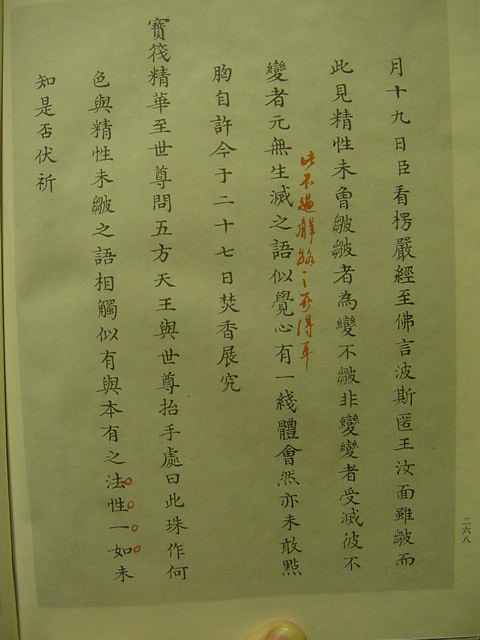 月十九日臣看楞嚴經至佛言波斯匿王汝面雖皺而
此見精性未曾皺皺者為變不皺非變變者受滅彼不
此不過解路之所得耳
變者元無生滅之語似覺心有一綫體會然亦未敢點
胸自許今于二十七日焚香展究
寶筏精華至世尊問五方天王與世尊抬手處曰此珠作何
色與精性未皺之語相觸似有與本有之法性一如未
知是否伏祈
二六八